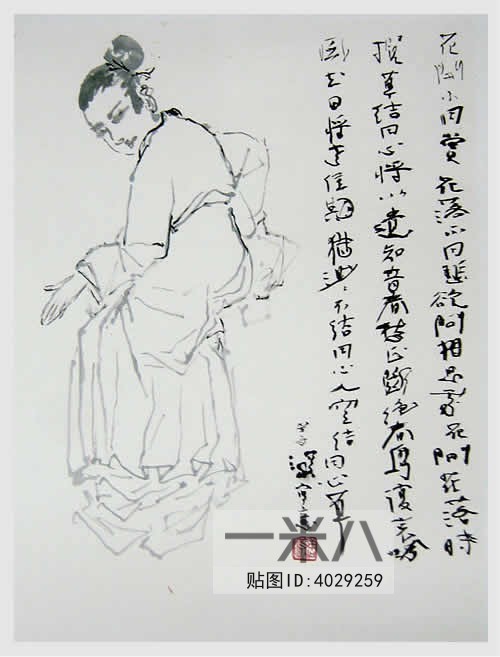 花開不同賞花落不同悲欲問相思處花開花落時
攬草結同心將以遺知音春愁正斷絕春鳥復哀吟
風花日將老佳期猶渺〻不結同心人空結同心草
一米八
贴图ID:4029259